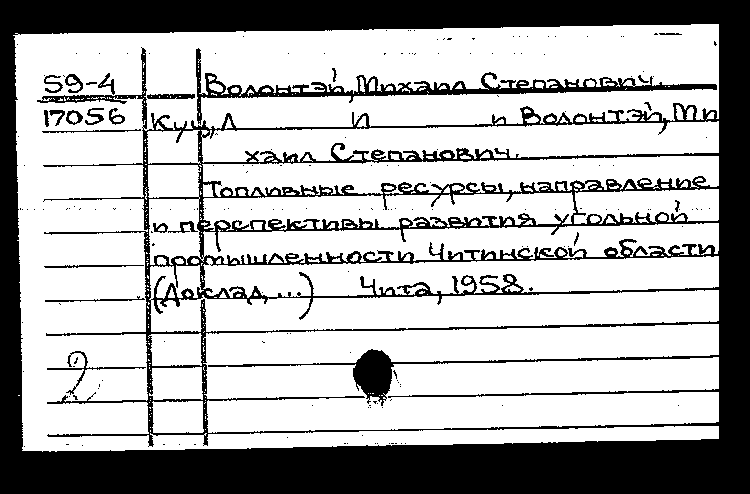 59-4 Волонтэй, Михаил Степанович.
17056 Куц, Л И и Волонтэй, Ми
хаил Степанович.
Топливные ресурсы, направление
и перспективы развития угольной
промышленности Читинской области
(Доклад, ...) Чита, 1958.
2